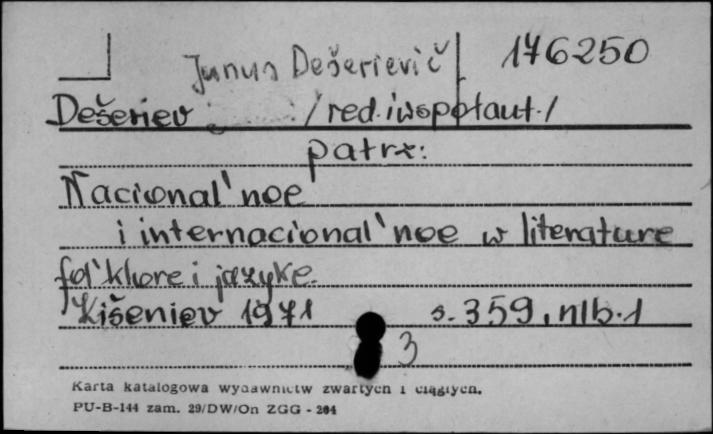 Junus Dešerievič 176250
Dešeriev /red.iwspółaut./
patrz:
Nacional'noe
i internacional'noe w literature
fol'klore i jazyke.
Kišeniev 1971 s. 359, nlb. 1
3
Karta katalogowa wydawnictw zwartych i ciągłych.
PU-B-144 zam. 29/DW/On ZGG - 204